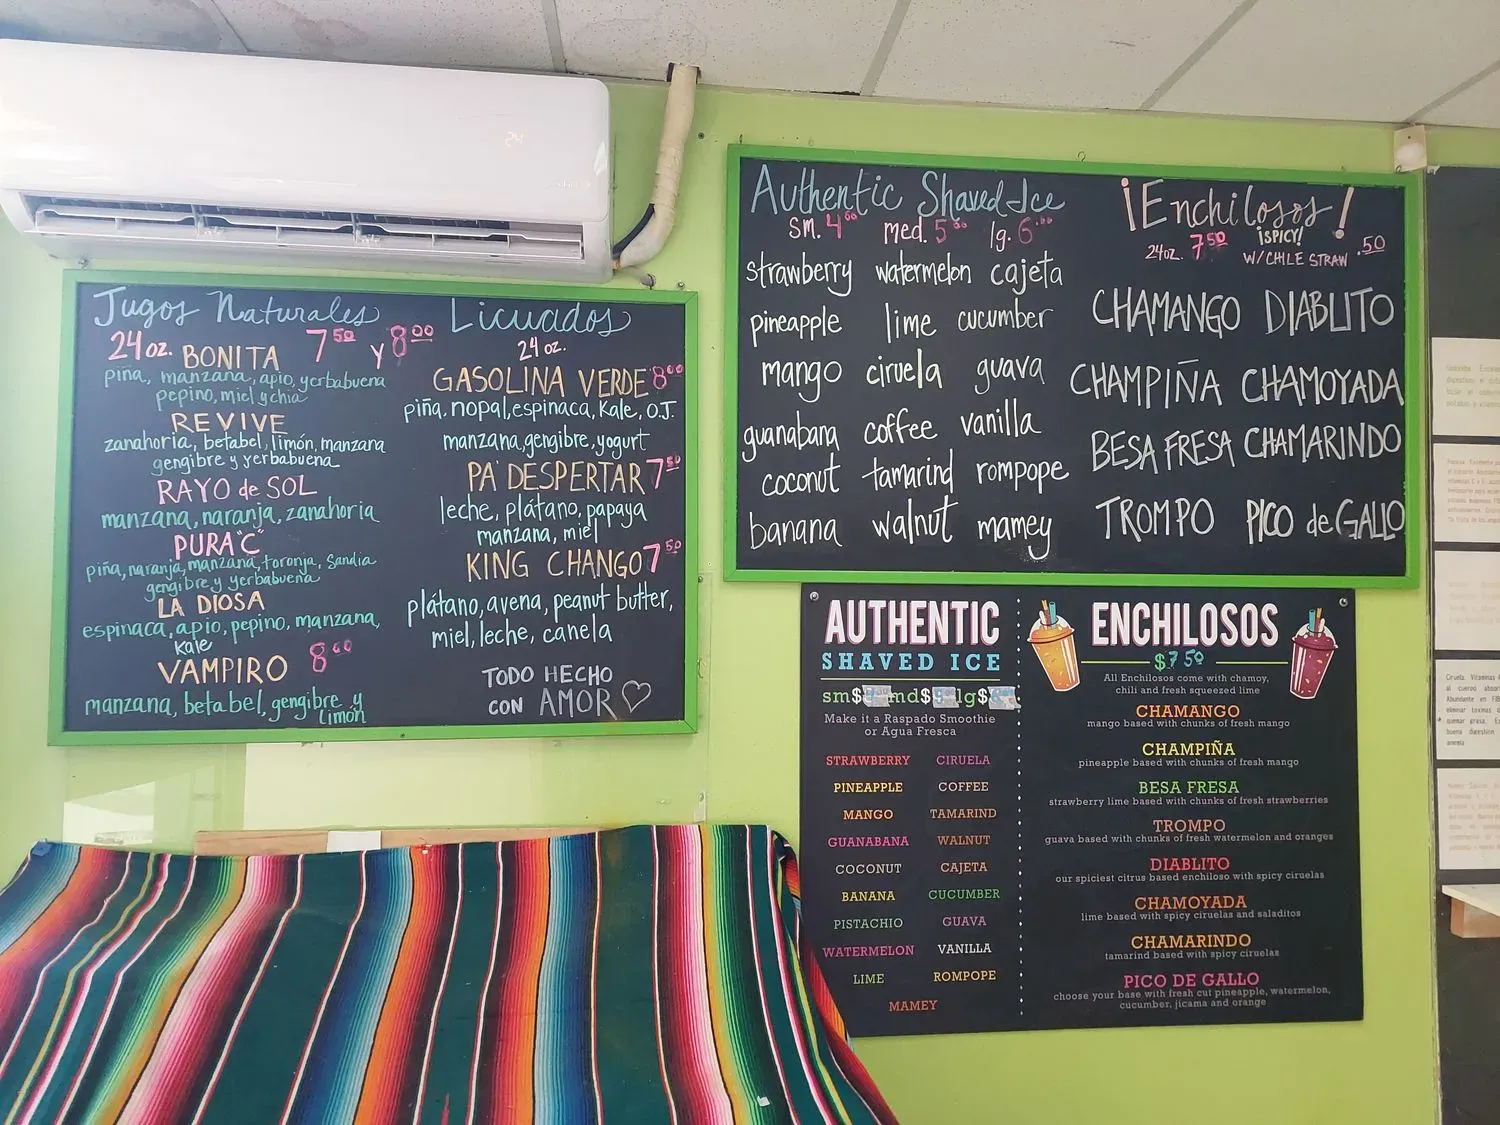 24
Jugos Naturales
24 oz. 7 50 y 8 00
BONITA
piña, manzana, apio, yerbabuena
pepino, miel y chia
REVIVE
zanahoria, betabel, limón, manzana
gengibre y yerbabuena
RAYO de SOL
manzana, naranja, zanahoria
PURA "C"
piña, naranja, manzana, toronja, Sandia
gengibre y yerbabuena
LA DIOSA
espinaca, apio, pepino, manzana,
kale
VAMPIRO 8 00
manzana, betabel, gengibre y
limón
Licuados
24 oz.
GASOLINA VERDE 8 00
piña, nopal, espinaca, Kale, O.J.
manzana, gengibre, yogurt
PA' DESPERTAR 7 50
leche, plátano, papaya
manzana, miel
KING CHANGO 7 50
plátano, avena, peanut butter,
miel, leche, canela
TODO HECHO
CON AMOR
Authentic Shaved Ice
sm. 4 00 med. 5 00 lg. 6 00
strawberry watermelon cajeta
pineapple lime cucumber
mango ciruela guava
guanabana coffee vanilla
coconut tamarind rompope
banana walnut mamey
¡Enchilosos!
¡SPICY!
24oz. 7 50 W/CHILE STRAW .50
CHAMANGO DIABLITO
CHAMPIÑA CHAMOYADA
BESA FRESA CHAMARINDO
TROMPO PICO de GALLO
AUTHENTIC
SHAVED ICE
sm$ md$ lg$
Make it a Raspado Smoothie
or Agua Fresca
STRAWBERRY CIRUELA
PINEAPPLE COFFEE
MANGO TAMARIND
GUANABANA WALNUT
COCONUT CAJETA
BANANA CUCUMBER
PISTACHIO GUAVA
WATERMELON VANILLA
LIME ROMPOPE
MAMEY
ENCHILOSOS
$7 50
All Enchilosos come with chamoy,
chili and fresh squeezed lime
CHAMANGO
mango based with chunks of fresh mango
CHAMPIÑA
pineapple based with chunks of fresh mango
BESA FRESA
strawberry lime based with chunks of fresh strawberries
TROMPO
guava based with chunks of fresh watermelon and oranges
DIABLITO
our spiciest citrus based enchiloso with spicy ciruelas
CHAMOYADA
lime based with spicy ciruelas and saladitos
CHAMARINDO
tamarind based with spicy ciruelas
PICO DE GALLO
choose your base with fresh cut pineapple, watermelon,
cucumber, jicama and orange
Ciruela. Vitaminas
al cuerpo
Abundante en
eliminar toxinas
quemar grasa.
buena digestión
anemia